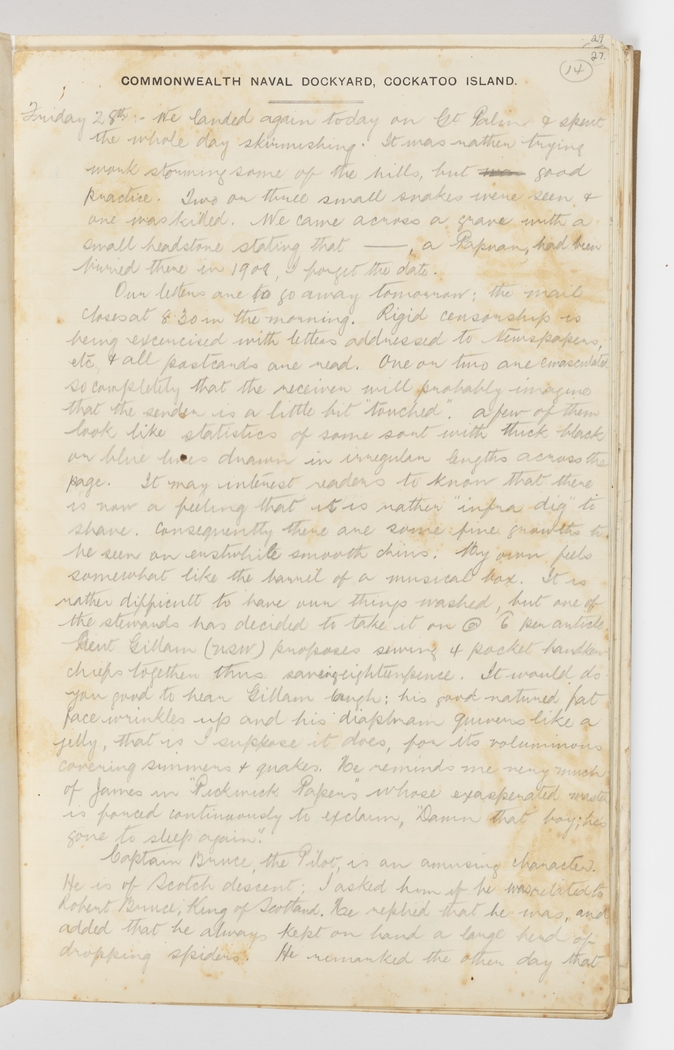 29
27.
14
COMMONWEALTH NAVAL DOCKYARD, COCKATOO ISLAND.
Friday 28th:- We landed again today on Gt Palm & spent
the whole day skirmishing. It was rather trying
work storming some of the hills, but was good
practice. Two or three small snakes were seen, &
one was killed. We came across a grave with a
small headstone stating that ——, a Papuan, had been
burried there in 1908, I forget the date.
Our letters are to go away tomorrow; the mail
closes at 8.30 in the morning. Rigid censorship is
being excercised with letters addressed to Newspapers,
etc, & all postcards are read. One or two are emasculated
so completely that the receiver will probably imagine
that the sender is a little bit "touched". A few of them
look like statistics of some sort with thick black
or blue lines drawn in irregular lengths across the
page. It may interest readers to know that there
is now a feeling that it is rather "infra dig" to
shave. Consequently there are some fine growths to
be seen on erstwhile smooth chins. My own feels
somewhat like the barrel of a musical box. It is
rather difficult to have our things washed, but one of
the stewards has decided to take it on @ 6 per article.
Lieut Gillam (NSW) proposes sewing 4 pocket handker-
chiefs together thus saving eighteenpence. It would do
you good to hear Gillam laugh; his good natured fat
face wrinkles up and his diaphram quivers like a
jelly, that is I suppose it does, for its voluminous
covering simmers & quakes. He reminds me very much
of James in "Pickwick Papers" whose exasperated master
is forced continuously to exclaim, "Damn that boy; he's
gone to sleep again".
Captain Bruce, the Pilot, is an amusing character.
He is of Scotch descent; I asked him if he was related to
Robert Bruce, King of Scotland. He replied that he was, and
added that he always kept on hand a large herd of
dropping spiders. He remarked the other day that